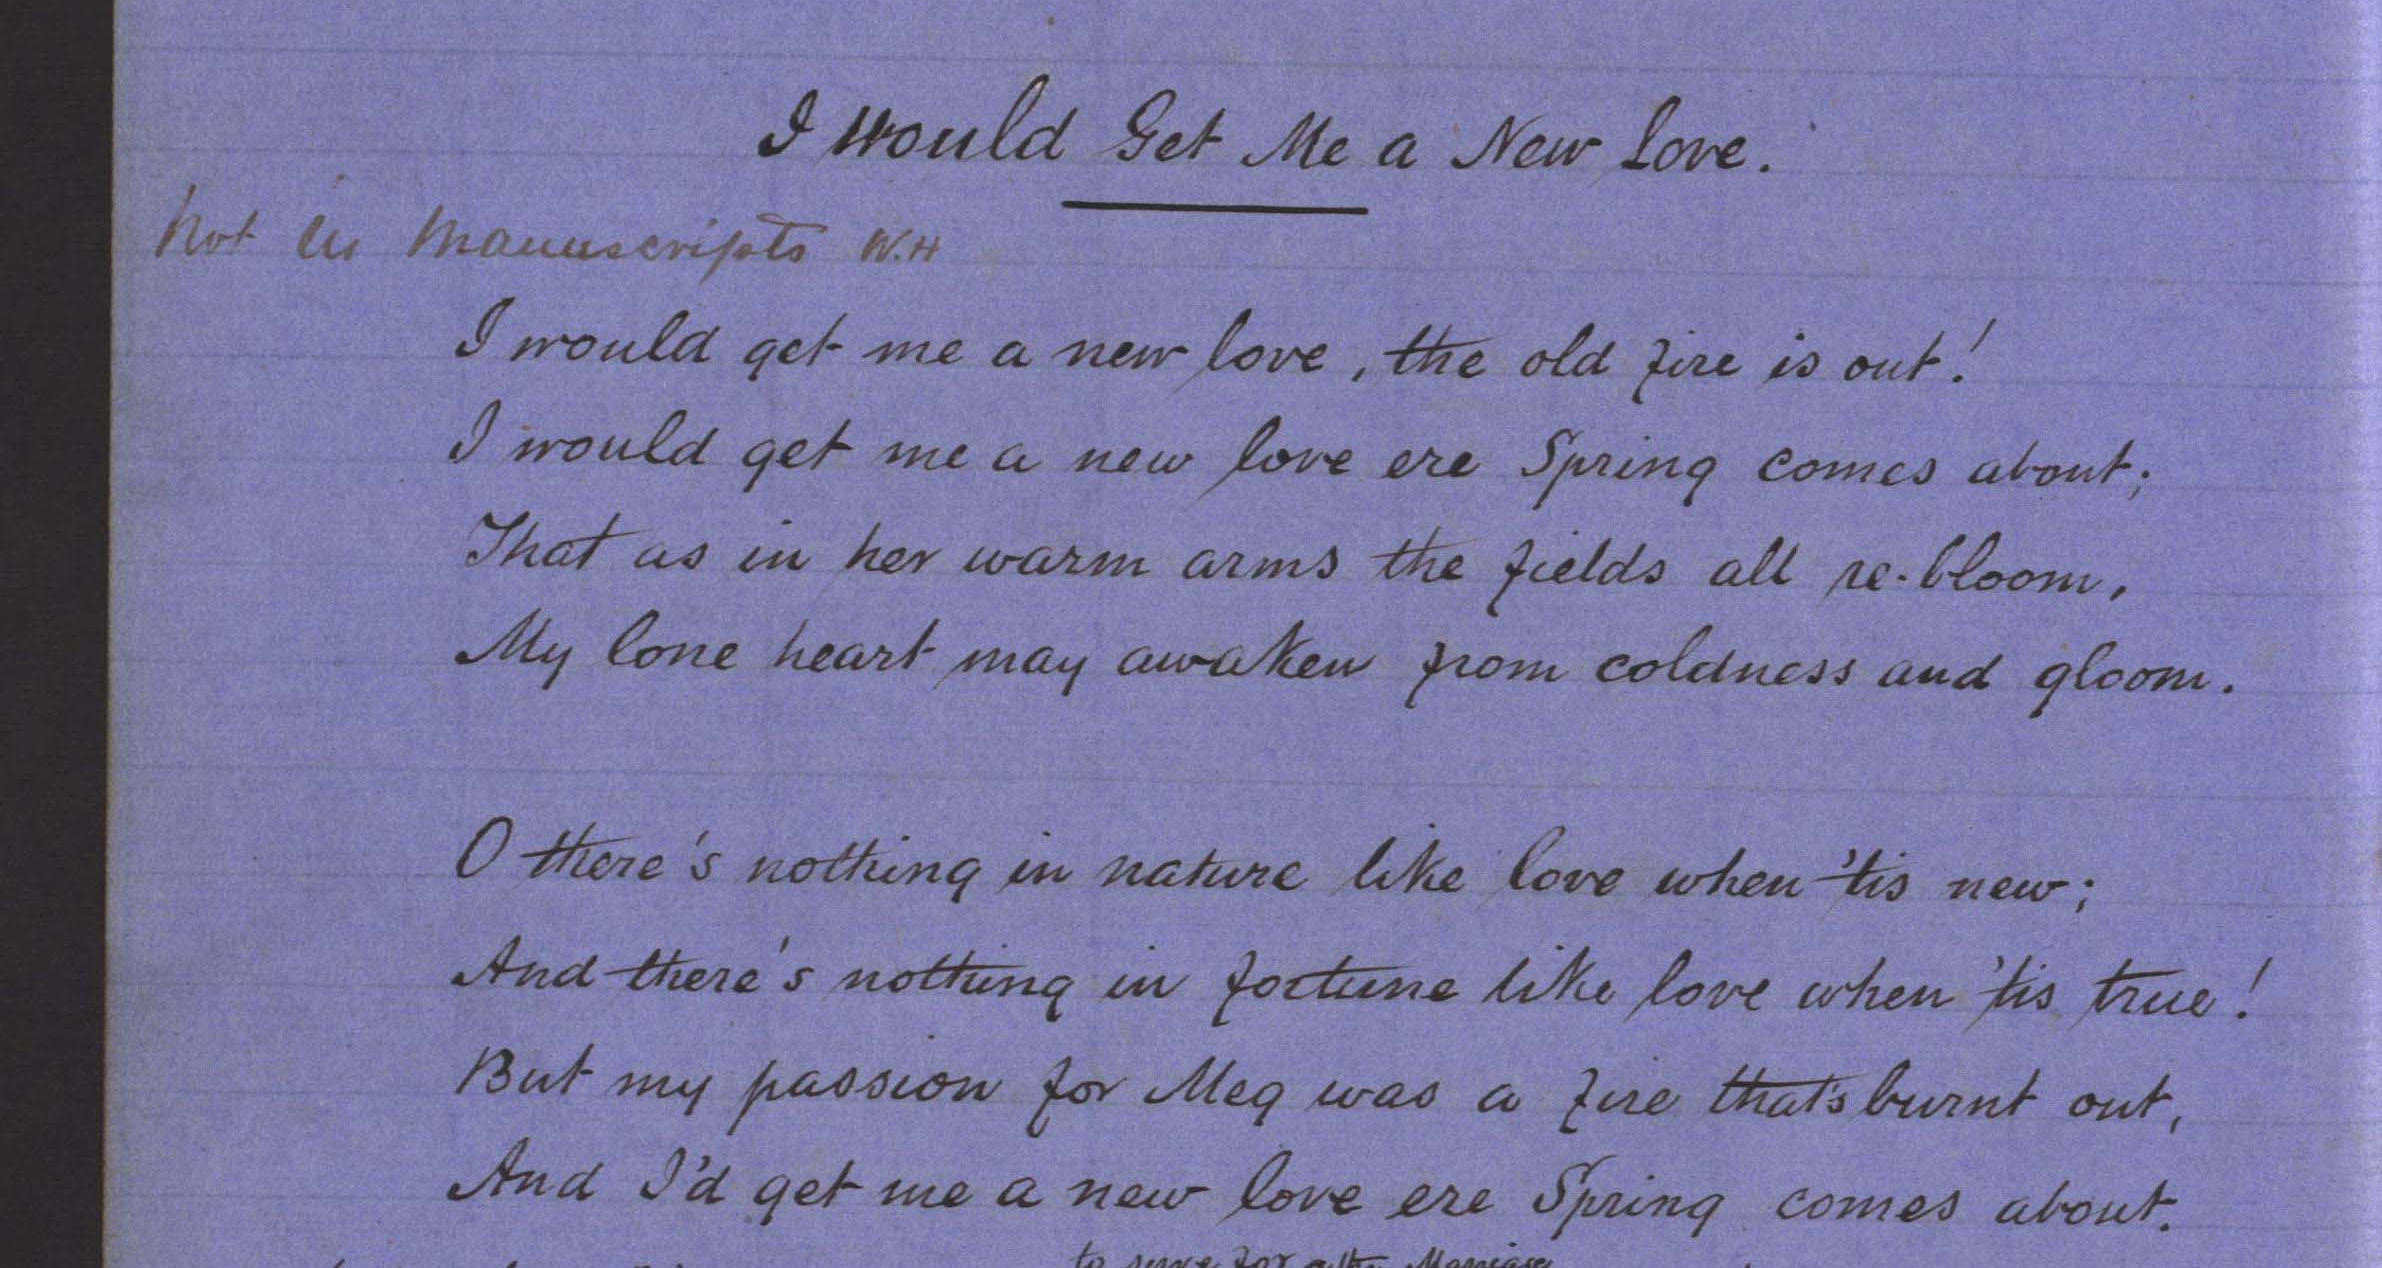 I Would Get Me a New Love.
Not in Manuscripts W.H
I would get me a new love, the old fire is out!
I would get me a new love ere Spring comes about;
That as in her warm arms the fields all re-bloom,
My lone heart may awaken from coldness and gloom.
O there's nothing in nature like love when 'tis new;
And there's nothing in fortune like love when 'tis true!
But my passion for Meg was a fire that's burnt out,
And I'd get me a new love ere Spring comes about.
to serve for